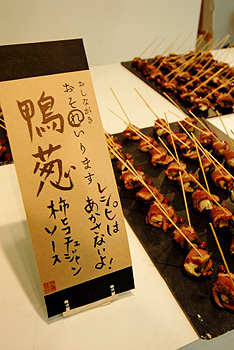 おしながき
おそれいります
鴨葱
レシピは
あかさないよ!
柿とコチュジャン
ソース